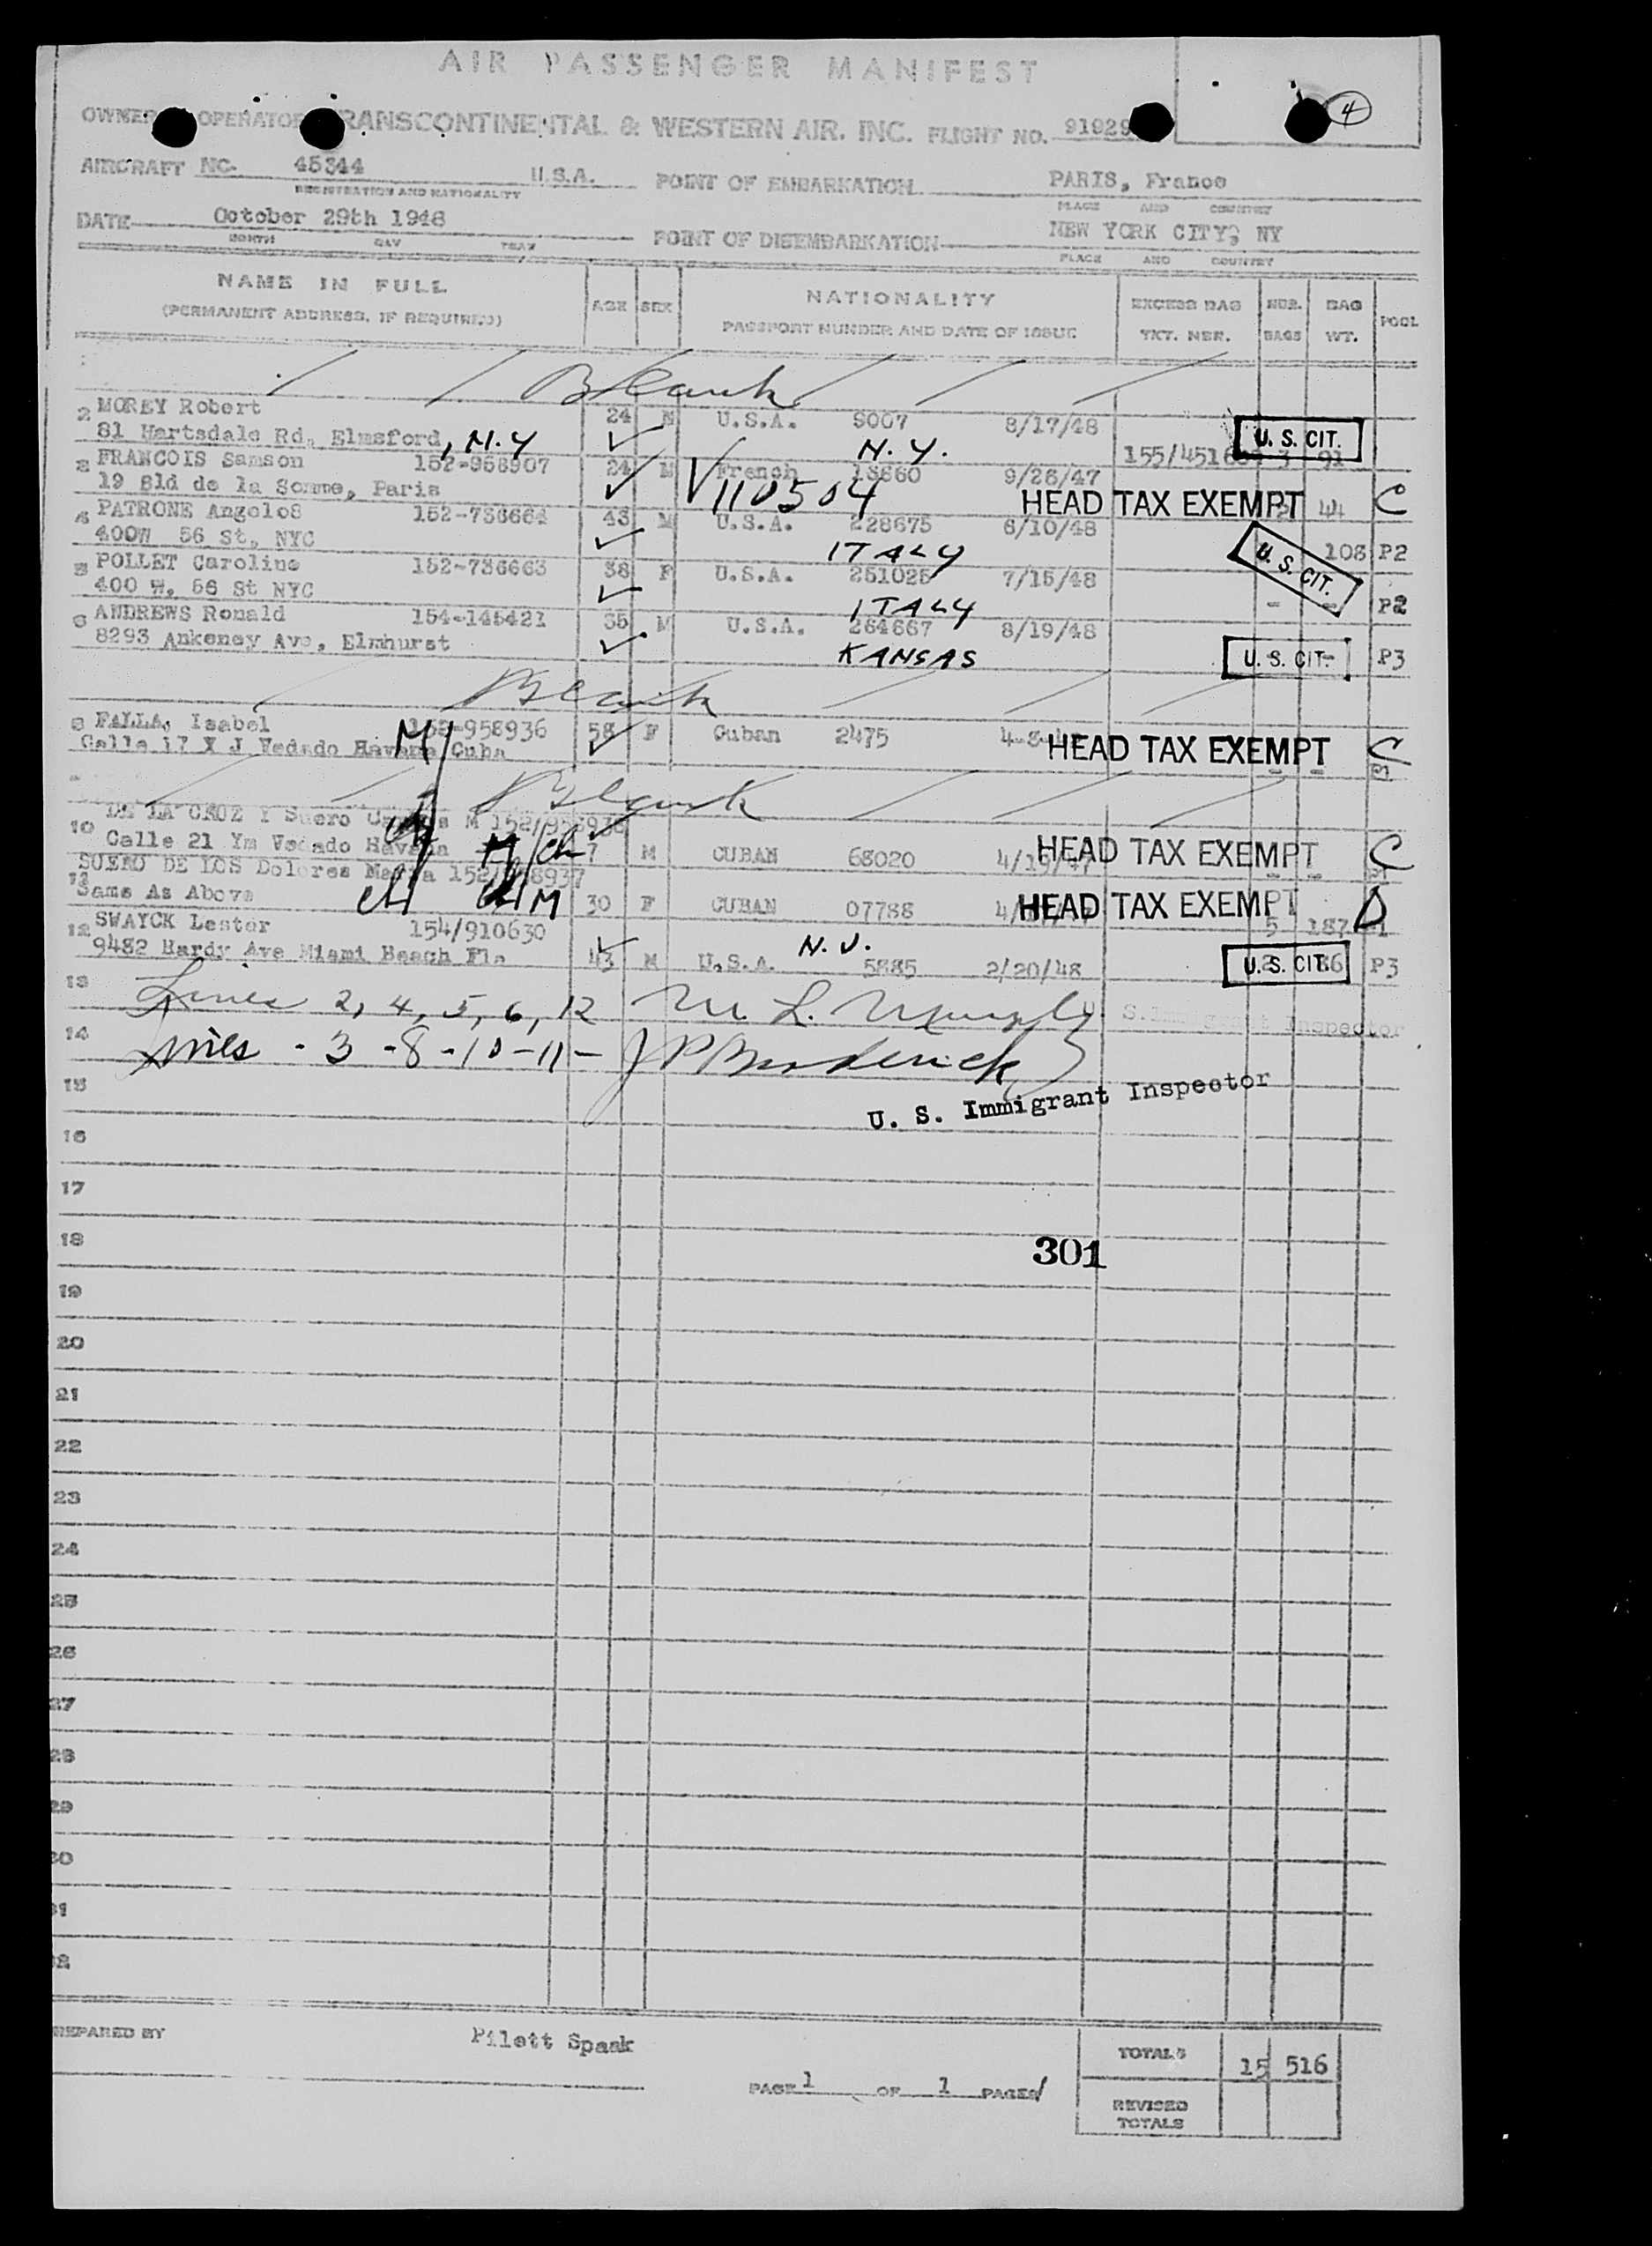 AIR PASSENGER MANIFEST
4
OWNER OPERATOR TRANSCONTINENTAL & WESTERN AIR. INC. FLIGHT NO. 91929
AIRCRAFT NC- 45344 U.S.A. POINT OF EMBARKATION PARIS, France
REGISTRATION AND NATIONALITY PLACE AND COUNTRY
DATE October 29th 1948 POINT OF DISEMBARKATION NEW YORK CITY, NY
MONTH DAY YEAR PLACE AND COUNTRY
NAME IN FULL AGE SEX NATIONALITY EXCESS BAG NBR. BAG POOL
(PERMANENT ADDRESS, IF REQUIRED) PASSPORT NUMBER AND DATE OF ISSUE TKT. NBR. BAGS WT.
Blank
2 MOREY Robert 24 M U.S.A. 9007 8/17/48
81 Hartsdale Rd, Elmsford, N.Y N.Y. 155/4516 3 91 U. S. CIT.
3 FRANCOIS Samson 152-958907 24 M French 18860 9/26/47
19 Bld de la Somme, Paris V110504 HEAD TAX EXEMPT 44 C
4 PATRONE AngeloS 152-736664 43 M U.S.A. 228675 6/10/48
400W 56 St, NYC ITALY U. S. CIT. 108 P2
5 POLLET Caroline 152-736663 38 F U.S.A. 251025 7/15/48
400 W. 56 St NYC ITALY - - P2
6 ANDREWS Ronald 154-145421 35 M U.S.A. 264667 8/19/48
8293 Ankeney Ave, Elmhurst KANSAS U. S. CIT. P3
Blank
8 FALLA, Isabel 152-958936 58 F Cuban 2475 4-8-
Calle 17 X J Vedado Havana Cuba HEAD TAX EXEMPT C
Blank
10 DE LA CRUZ Y Suero M 152/958938
Calle 21 Ym Vedado Havana 7 M CUBAN 68020 4/15/47 HEAD TAX EXEMPT C
11 SUERO DE LOS Dolores Maria 152/958937
Same As Above 30 F CUBAN 07788 4/ HEAD TAX EXEMPT 5 187
12 SWAYCK Lester 154/910630 N.J.
9482 Hardy Ave Miami Beach Fla 43 M U.S.A. 5885 2/20/48 U.S. CIT. 86 P3
13 Lines 2, 4, 5, 6, 12 Inspector
14 Lines - 3 - 8 - 10 - 11 - J P Broderick
15
U. S. Immigrant Inspector
16
17
18 301
19
20
21
22
23
24
25
26
27
28
29
30
31
32
PREPARED BY Pilett Spaak
PAGE 1 OF 1 PAGES
TOTALS 15 516
REVISED
TOTALS